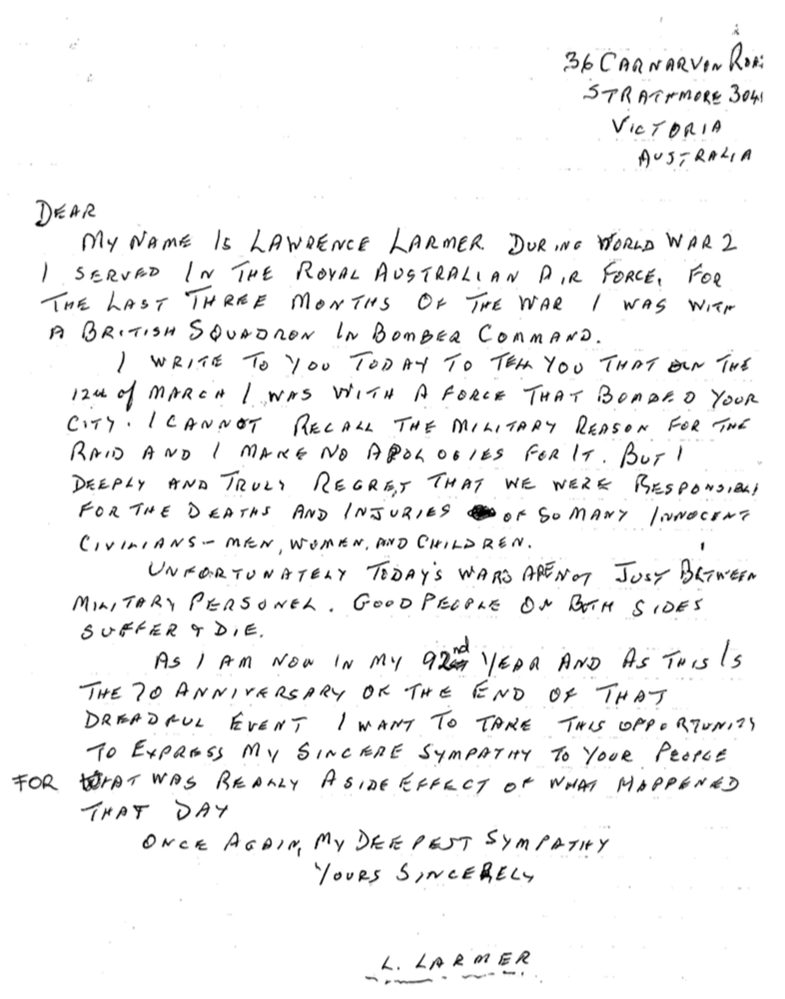 36 CARNARVON ROA
STRATHMORE 3041
VICTORIA
AUSTRALIA
DEAR
MY NAME IS LAWRENCE LARMER. DURING WORLD WAR 2
I SERVED IN THE ROYAL AUSTRALIAN AIR FORCE, FOR
THE LAST THREE MONTHS OF THE WAR I WAS WITH
A BRITISH SQUADRON IN BOMBER COMMAND.
I WRITE TO YOU TODAY TO TELL YOU THAT ON THE
12th of MARCH I WAS WITH A FORCE THAT BOMBED YOUR
CITY. I CANNOT RECALL THE MILITARY REASON FOR THE
RAID AND I MAKE NO APOLOGIES FOR IT. BUT I
DEEPLY AND TRULY REGRET THAT WE WERE RESPONSIBL
FOR THE DEATHS AND INJURIES OF SO MANY INNOCENT
CIVILIANS - MEN, WOMEN, AND CHILDREN.
UNFORTUNATELY TODAY'S WARS ARE NOT JUST BETWEEN
MILITARY PERSONEL. GOOD PEOPLE ON BOTH SIDES
SUFFER & DIE.
AS I AM NOW IN MY 92nd YEAR AND AS THIS IS
THE 70 ANNIVERSARY OF THE END OF THAT
DREADFUL EVENT I WANT TO TAKE THIS OPPORTUNITY
TO EXPRESS MY SINCERE SYMPATHY TO YOUR PEOPLE
FOR WHAT WAS REALLY A SIDE EFFECT OF WHAT HAPPENED
THAT DAY
ONCE AGAIN, MY DEEPEST SYMPATHY
YOURS SINCERELY
L. LARMER